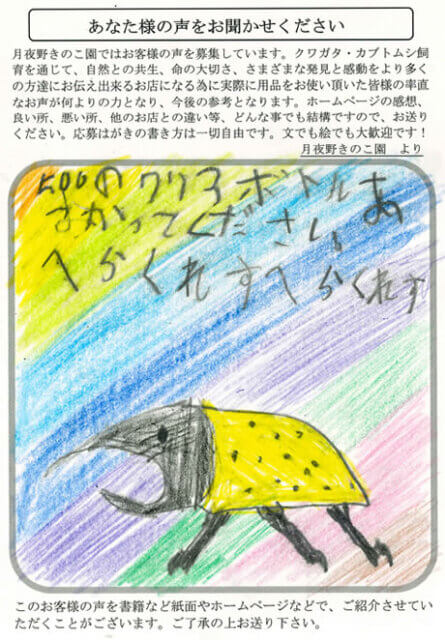 あなた様の声をお聞かせください
月夜野きのこ園ではお客様の声を募集しています。クワガタ・カブトムシ飼
育を通じて、自然との共生、命の大切さ、さまざまな発見と感動をより多く
の方達にお伝え出来るお店になる為に実際に用品をお使い頂いた皆様の率直
なお声が何よりの力となり、今後の参考となります。ホームページの感想、
良い所、悪い所、他のお店との違い等、どんな事でも結構ですので、お送り
ください。応募はがきの書き方は一切自由です。文でも絵でも大歓迎です！
月夜野きのこ園　より
500のクリアボトルあ
まがってください
へらくれすへらくれす
このお客様の声を書籍など紙面やホームページなどで、ご紹介させていた
だくことがございます。ご了承の上お送り下さい。